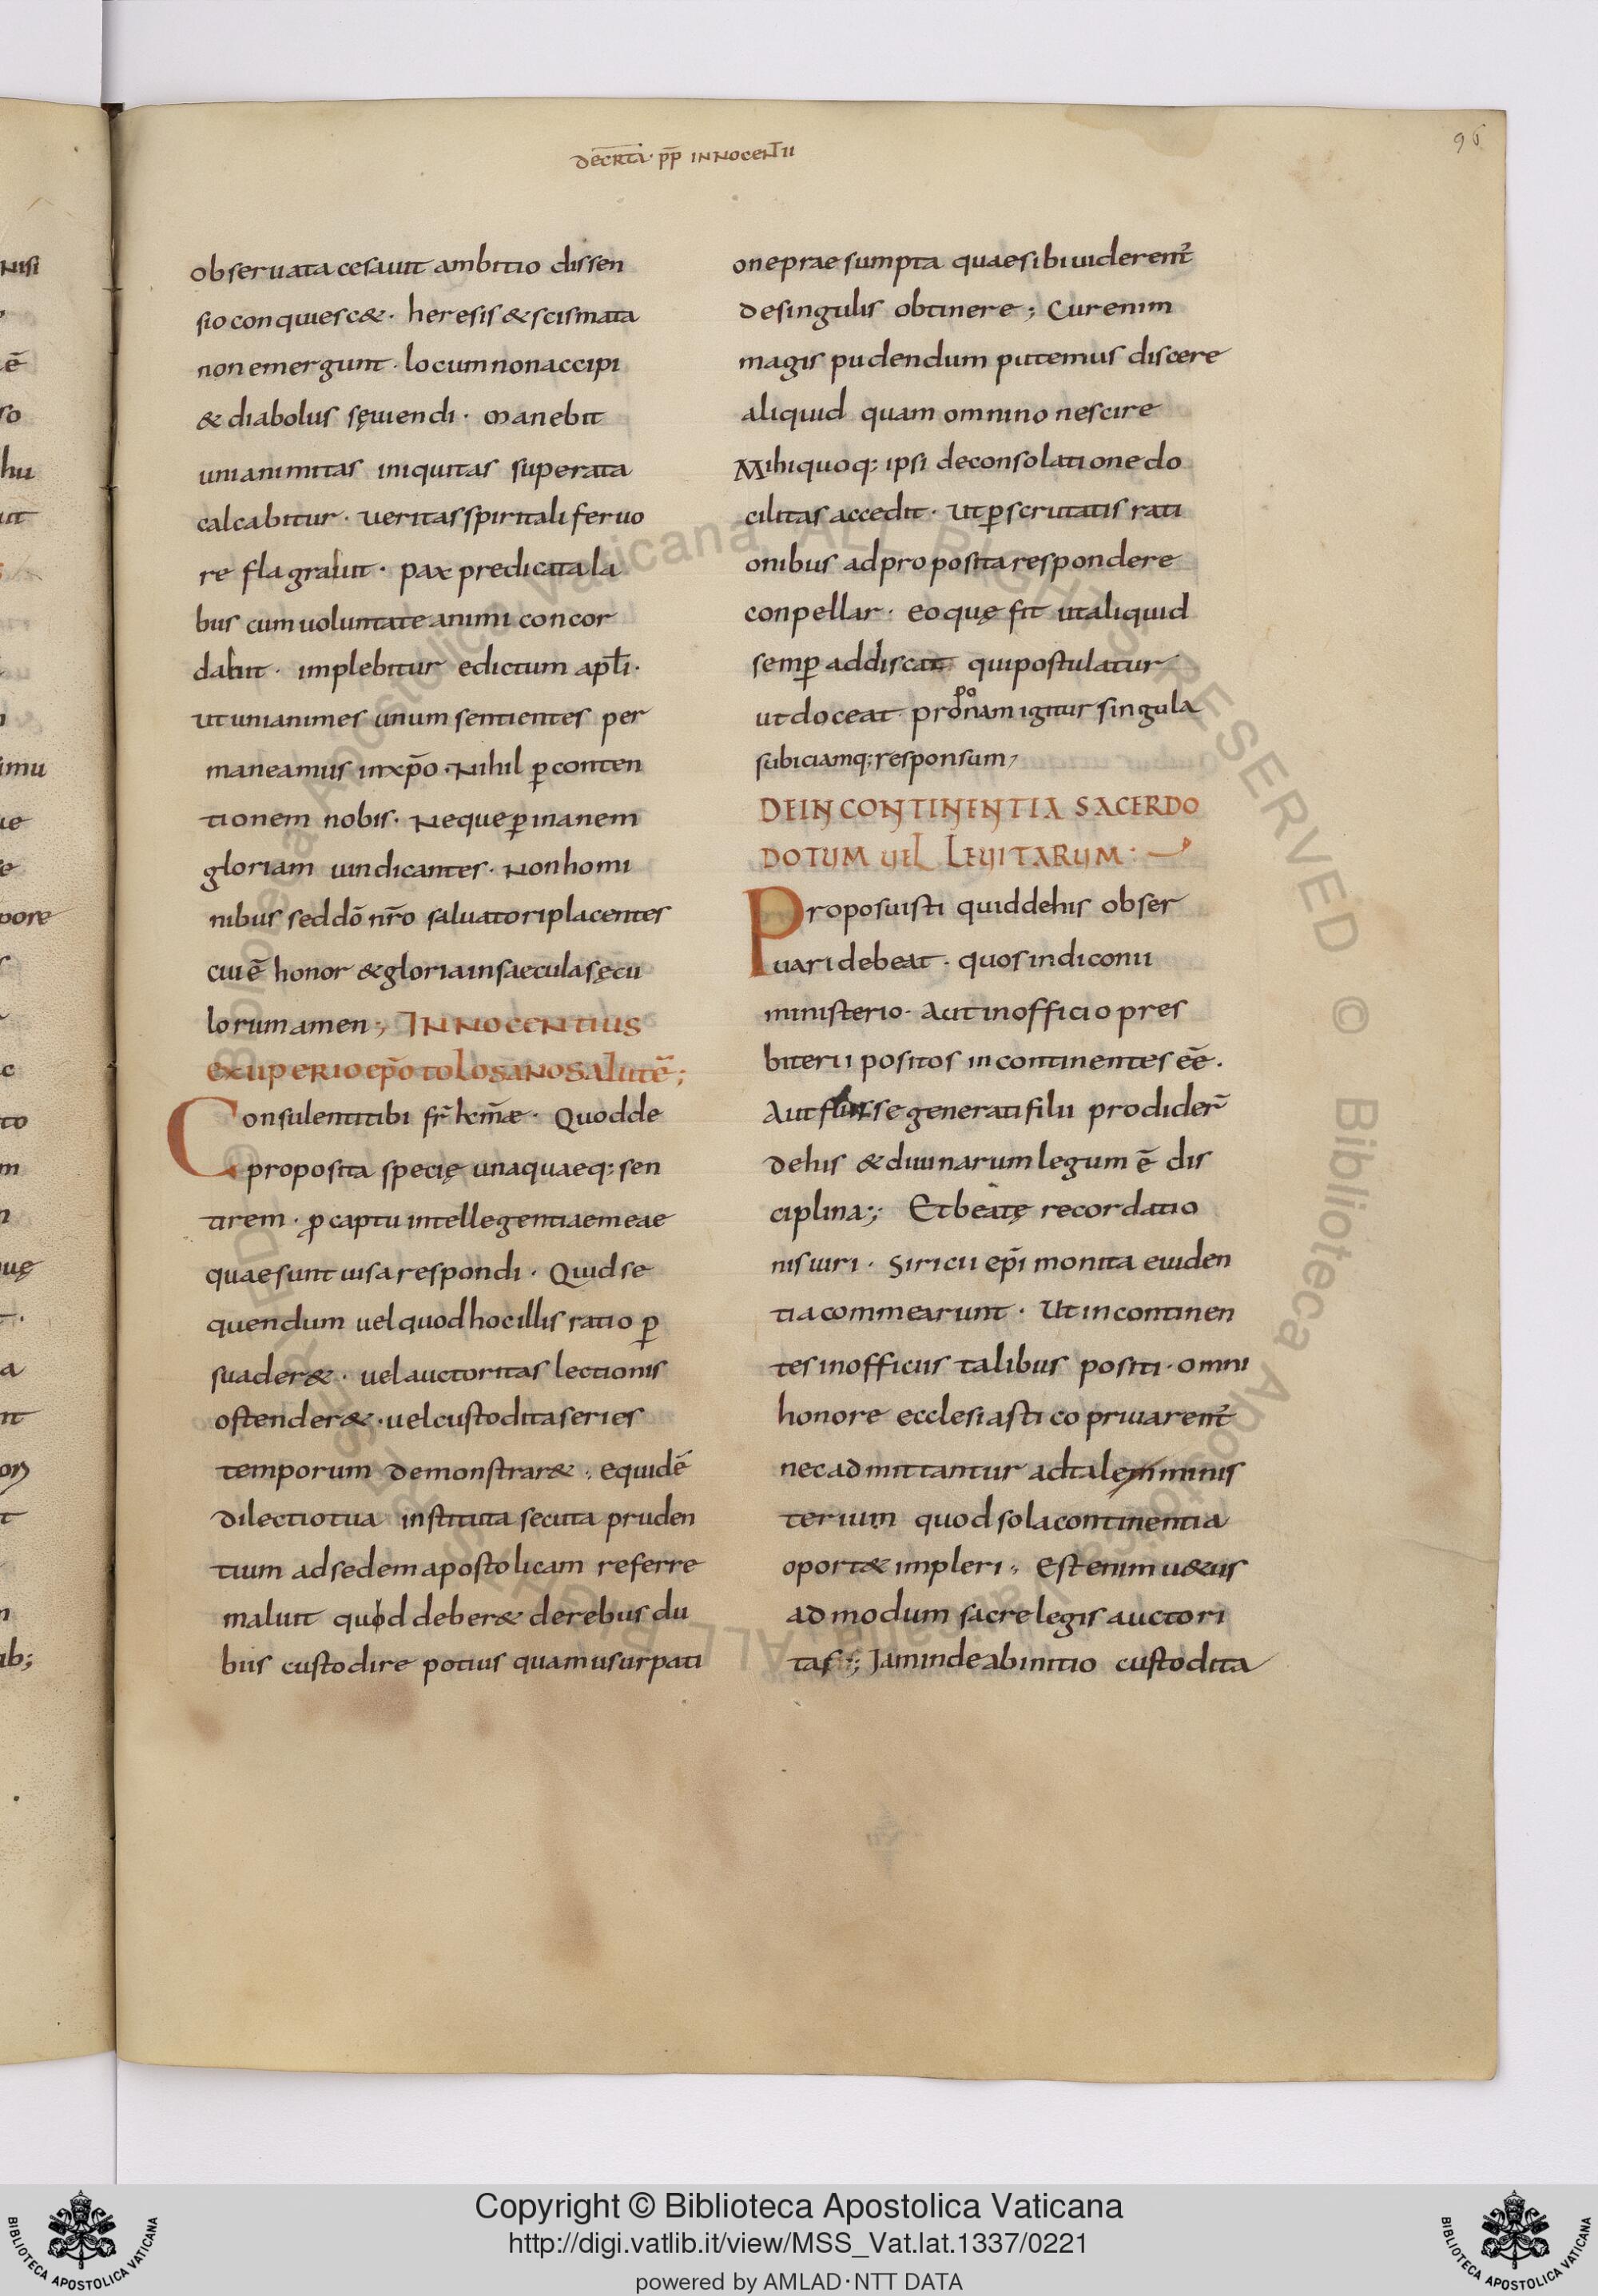 decrtā pp̄ innocentii
96
observata cesauit ambitio dissen
sio conquiesc&· heresis & scismata
non emergunt· locum non accipi
& diabolus sęuiendi· Manebit
unianimitas iniquitas superata
calcabitur· Veritas spiritali feruo
re flagrabit· pax predicata la
bus cum uoluntate animi concor
dabit· implebitur edictum apłi·
ut unianimes unum sentientes per
maneamus in xp̄o· Nihil ꝑ conten
tionem nobis· Neque ꝑ inanem
gloriam uindicantes· Non homi
nibus sed dō nr̄o saluatori placentes
cui ē honor & gloria in saecula sęcu
lorum amen; INNOCENTIUS
EXUPERIO EP̄O TOLOSANO SALUTĒ;
Consulenti tibi fr̄ kc̄mæ· Quod de
proposita specię unaquaeq; sen
tirem· ꝓ captu intellegentiae meae
quae sunt uisa respondi· Quid se
quendum uel quod hoc illis ratio ꝑ
suader&· uel auctoritas lectionis
ostender&· uel custodita series
temporum demonstrar&· equidē
dilectio tua instituta secuta pruden
tium ad sedem apostolicam referre
maluit quod deber& de rebus du
biis custodire potius quam usurpati
one praesumpta quae sibi uiderent̄
de singulis obtinere; Cur enim
magis pudendum putemus discere
aliquid quam omnino nescire
Mihi quoq; ipsi de consolatione do
cilitas accedit· Ut ꝑscrutatis rati
onibus ad proposita respondere
conpellar· eo quę fit ut aliquid
semꝑ addiscat qui postulatur
ut doceat· pro
po
nam igitur singula
subiciamq; responsum,
DE INCONTINENTIA SACERDO
DOTUM UEL LEUITARUM·
Proposuisti quid de his obser
uari debeat· quos in diconii
ministerio· Aut in officio pres
biterii positos incontinentes eē·
Aut fuisse generati filii prodider̄
de his & diuinarum legum ē dis
ciplina; Et beatę recordatio
nis uiri· Siricii ep̄i monita euiden
tia commearunt· Ut incontinen
tes in officiis talibus positi· omni
honore ecclesiastico priuarent̄
nec admittantur ad talem minis
terium quod sola continentia
oport& impleri· Est enim u&us
admodum sacre legis auctori
tas; Jam inde ab initio custodita
Nisi
ē
so
hu
uit
simu
ue
e
pore
c
to
m
uę
a
nt
ib;
Copyright © Biblioteca Apostolica Vaticana
http://digi.vatlib.it/view/MSS_Vat.lat.1337/0221
powered by AMLAD·NTT DATA
BIBLIOTECA APOSTOLICA VATICANA
BIBLIOTECA APOSTOLICA VATICANA